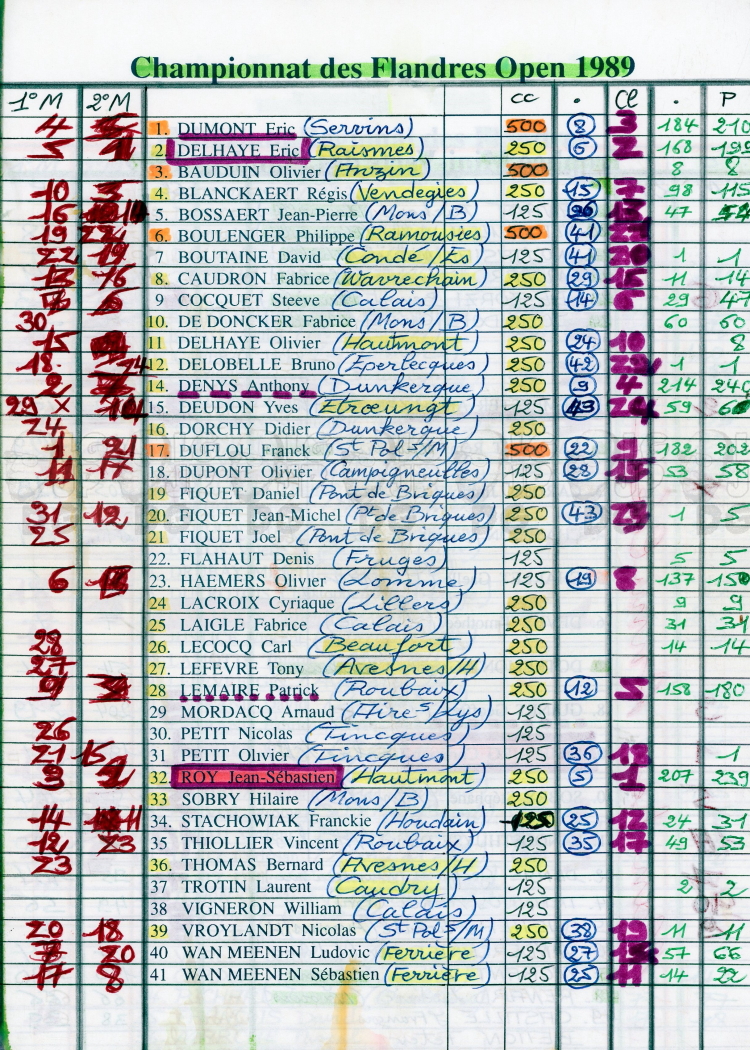 Championnat des Flandres Open 1989
1° M 2° M cc . Cl . P
4 1. DUMONT Eric (Servins) 500 8 3 184 210
5 2. DELHAYE Eric (Raismes) 250 6 2 168 199
3. BAUDUIN Olivier (Anzin) 500 8 8
10 3 4. BLANCKAERT Régis (Vendegies) 250 15 7 98 115
16 5. BOSSAERT Jean-Pierre (Mons/B) 125 47
19 6. BOULENGER Philippe (Ramousies) 500 41
22 19 7 BOUTAINE David (Condé/Es) 125 41 20 1 1
13 16 8. CAUDRON Fabrice (Wavrechain) 250 29 15 11 14
9 COCQUET Steeve (Calais) 125 14 6 29 47
30 10. DE DONCKER Fabrice (Mons/B) 250 60 60
15 11 DELHAYE Olivier (Hautmont) 250 24 10 8
18. 12. DELOBELLE Bruno (Eperlecques) 250 42 1 1
2 14. DENYS Anthony (Dunkerque) 250 9 4 214 240
29 x 15. DEUDON Yves (Etrœungt) 125 43 59
24 16. DORCHY Didier (Dunkerque) 250
1 21 17. DUFLOU Franck (St Pol s/M) 500 22 9 182 202
11 17 18. DUPONT Olivier (Campigneulles) 125 28 53 58
19 FIQUET Daniel (Pont de Briques) 250
31 12 20. FIQUET Jean-Michel (Pt de Briques) 250 43 1 5
25 21 FIQUET Joel (Pont de Briques) 250
22. FLAHAUT Denis (Fruges) 125 5 5
6 23. HAEMERS Olivier (Lomme) 125 19 8 137 150
24 LACROIX Cyriaque (Lillers) 250 9 9
25 LAIGLE Fabrice (Calais) 250 31 31
28 26. LECOCQ Carl (Beaufort) 250 14 14
27 27. LEFEVRE Tony (Avesnes/H) 250
9 28 LEMAIRE Patrick (Roubaix) 250 12 5 158 180
29 MORDACQ Arnaud (Aire s/Lys) 125
26 30. PETIT Nicolas (Tincques) 125
21 15 31 PETIT Olivier (Tincques) 125 36 18 1
3 32. ROY Jean-Sébastien (Hautmont) 250 5 1 207 239
33 SOBRY Hilaire (Mons/B) 250
14 11 34. STACHOWIAK Franckie (Houdain) 125 25 12 24 31
12 23 35 THIOLLIER Vincent (Roubaix) 125 35 17 49 53
23 36. THOMAS Bernard (Avesnes/H) 250
37 TROTIN Laurent (Caudry) 125 2 2
38 VIGNERON William (Calais) 125
20 18 39 VROYLANDT Nicolas (St Pol s/M) 250 38 19 11 11
20 40 WAN MEENEN Ludovic (Ferrière) 125 27 57 66
17 8 41 WAN MEENEN Sébastien (Ferrière) 125 25 11 14 22